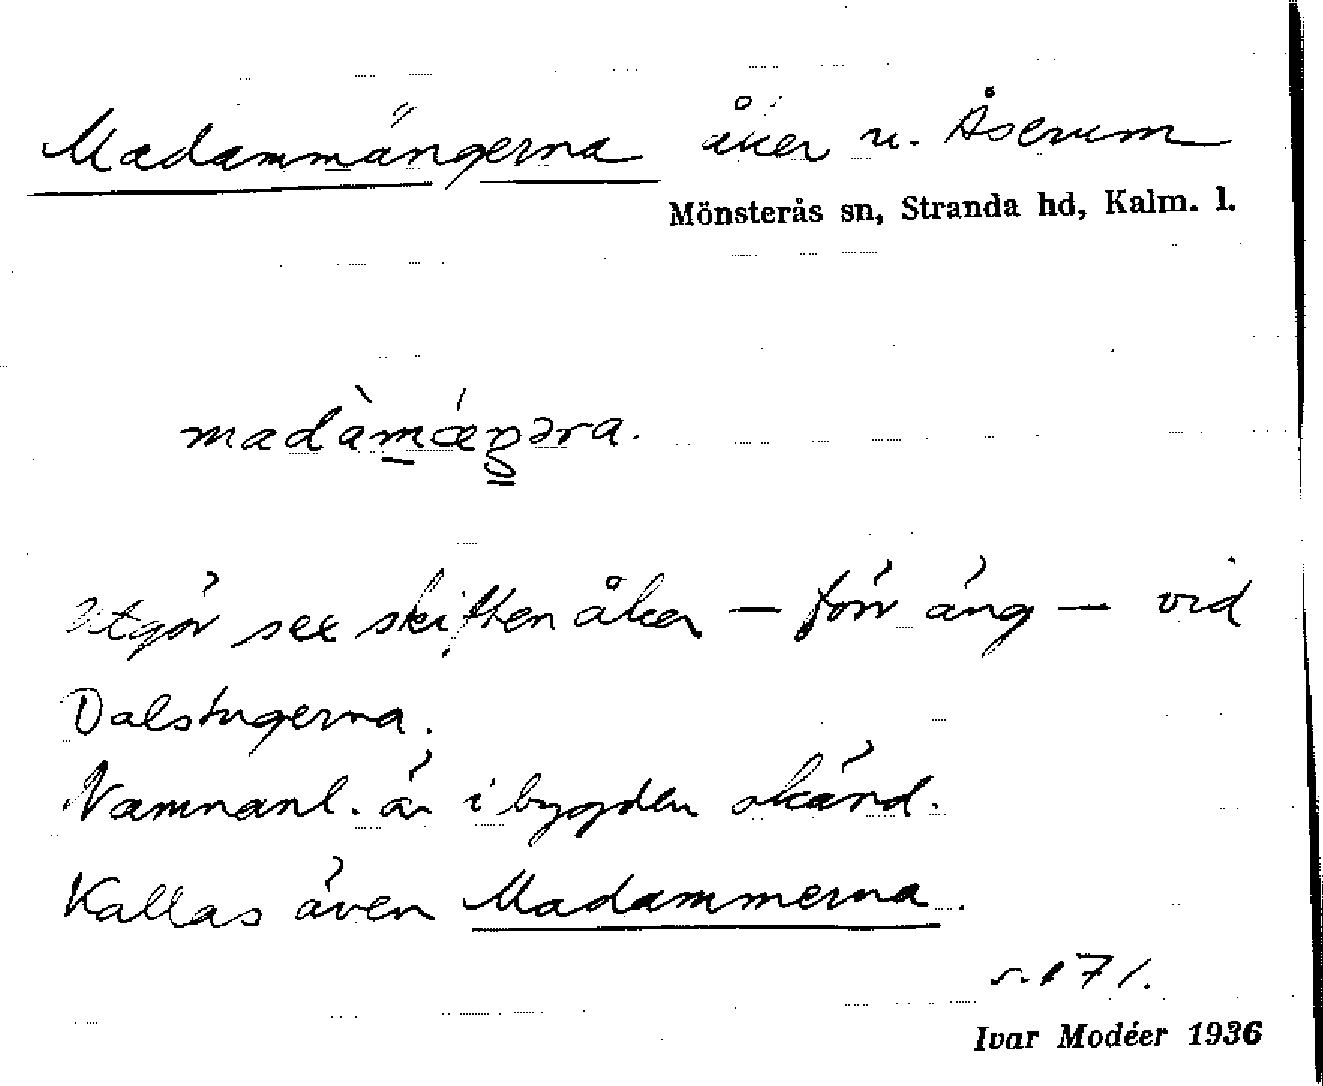 Madammängerna åker u. Åserum
Mönsterås sn, Stranda hd, Kalm. l.
madàmǽŋəra.
Utgör sex skiften åker — förr äng — vid
Dalstugerna.
Namnanl. är i bygden okänd.
Kallas även Madammerna.
s. 171.
Ivar Modéer 1936